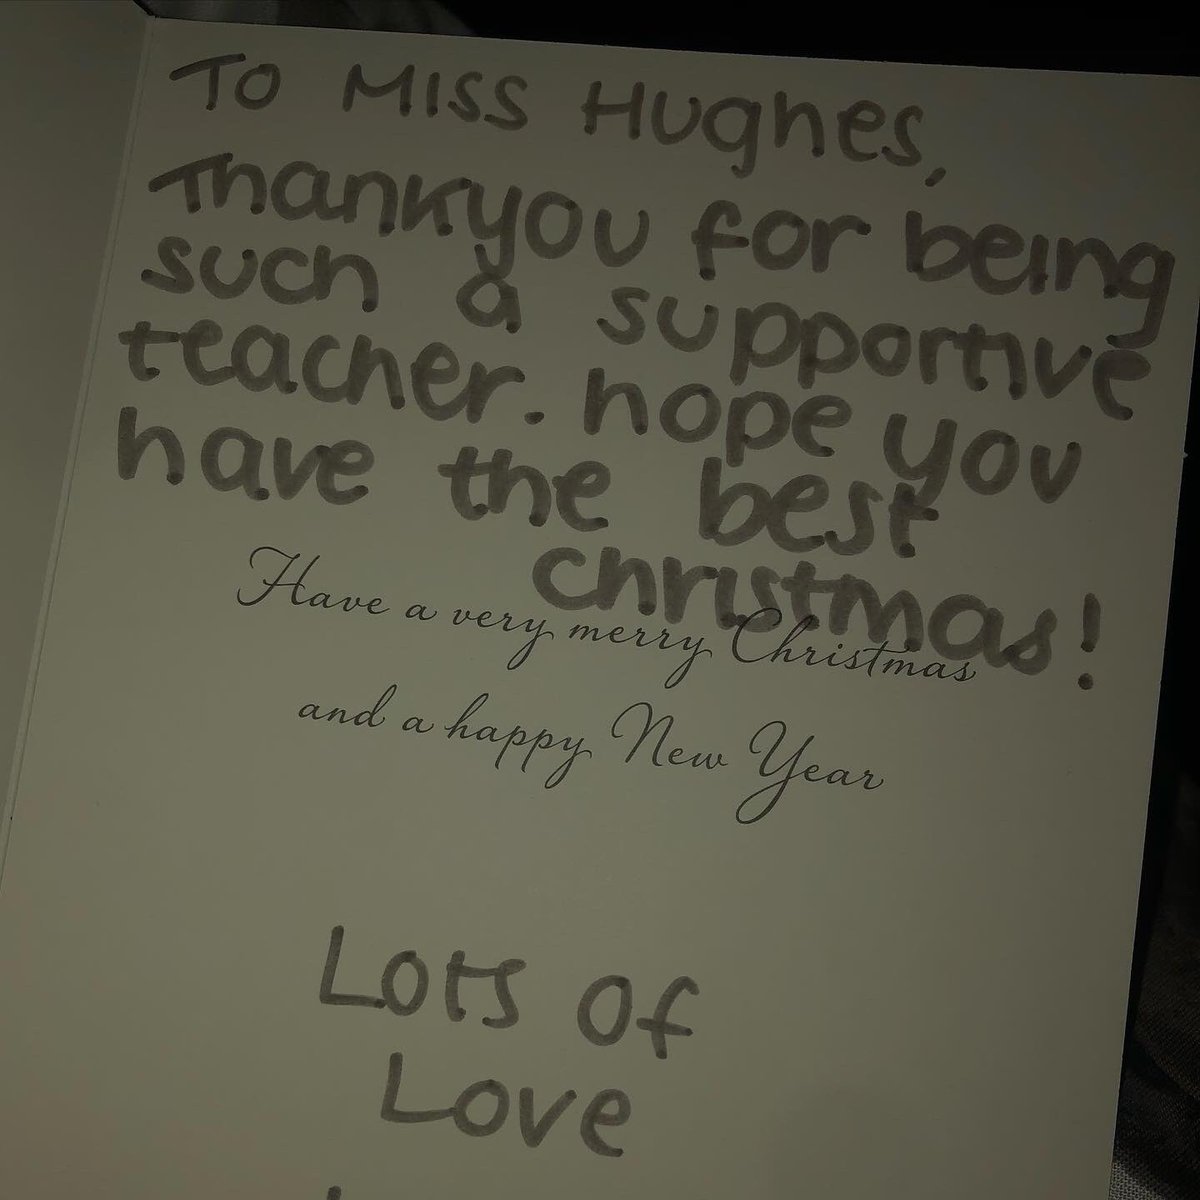 To Miss Hughes,
Thankyou for being
such a supportive
teacher. hope you
have the best
christmas!
Have a very merry Christmas
and a happy New Year
Lots of
Love